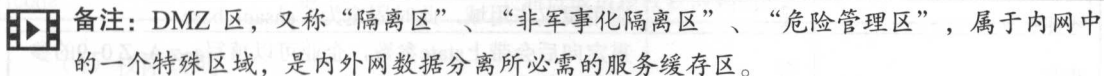 备注：DMZ 区，又称“隔离区”、“非军事化隔离区”、“危险管理区”，属于内网中
的一个特殊区域，是内外网数据分离所必需的服务缓存区。